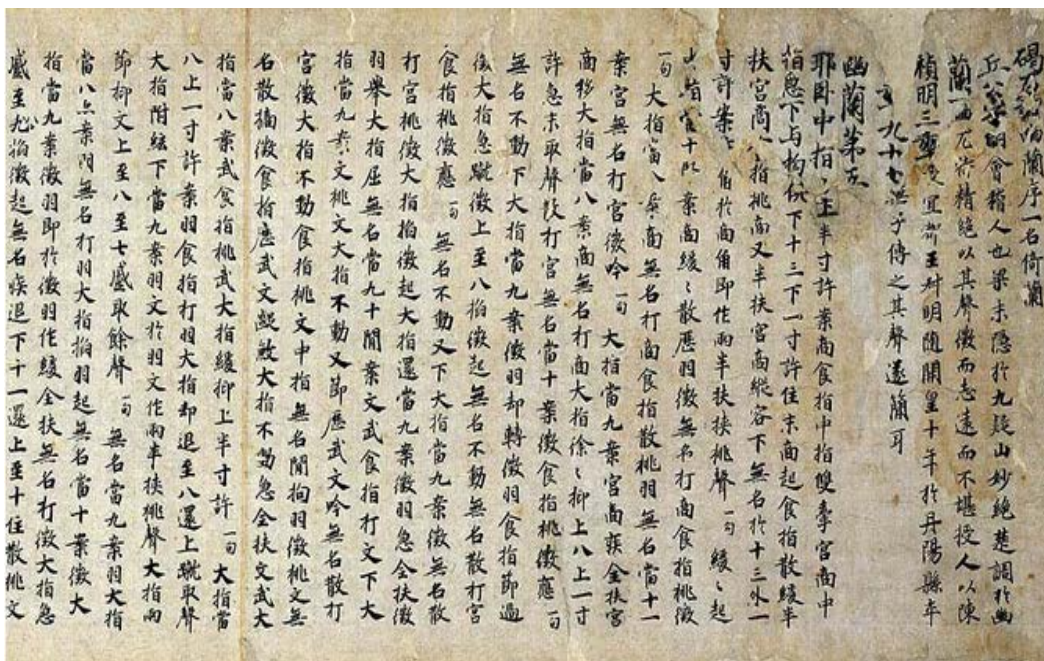 碣石調幽蘭序一名倚蘭
丘公字明會稽人也梁末隱於九疑山妙絕楚調於幽
蘭一曲尤特精絕以其聲微而志遠而不堪授人以陳
禎明三年授宜都王叔明隨開皇十年於丹陽縣卒
年九十七無子傳之其聲遂簡耳
幽蘭第五
耶臥中指〻上半寸許案商食指中指雙牽宮商中
指急下与拘俱下十三下一寸許住末商起食指散緩半
扶宮商食指挑商又半扶宮商縱容下無名於十三外一
寸許案商角於商角即作兩半扶挾挑聲一句 緩〻起
指當十 案商緩〻散歷羽徵無名打商食指挑徵
一句 大指當八案商無名打商食指散挑羽無名當十一
案宮無名打宮徵吟一句 大指當九案宮商疾全扶宮
商移大指當八案商無名打商大指徐〻抑上八上一寸
許急末取聲散打宮無名當十案徵食指挑徵應一句
無名不動下大指當九案徵羽却轉徵羽食指節過
徵大指急蹴徵上至八掐徵起無名不動無名散打宮
食指挑徵應一句 無名不動又下大指當九案徵無名散
打宮挑徵大指掐徵起大指還當九案徵羽急全扶徵
羽舉大指屈無名當九十間案文武食指打文下大
指當九案文挑文大指不動又節歷武文吟無名散打
宮徵大指不動食指挑文中指無名間拘羽徵挑文無
名散摘徵食指歷武文齪敠大指不動急全扶文武大
指當八案武食指挑武大指緩抑上半寸許一句 大指當
八上一寸許案羽食指打羽大指却退至八還上蹴取聲
大指附絃下當九案羽文於羽文作兩半挾挑聲大指兩
節抑文上至八至七蹙取餘聲一句 無名當九案羽大指
當八上案間無名打羽大指掐羽起無名當十案徵大
指當九案徵羽即於徵羽作緩全扶無名打徵大指急
蹙至九掐徵起無名疾退下十一還上至十住散挑文